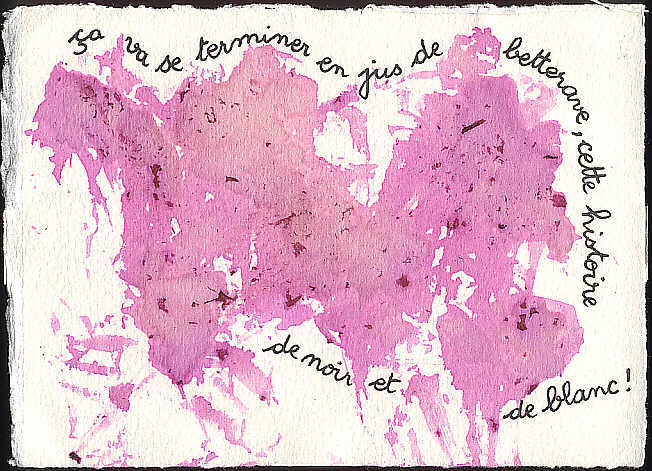 ça va se terminer en jus de betterave, cette histoire
de noir et
de blanc!